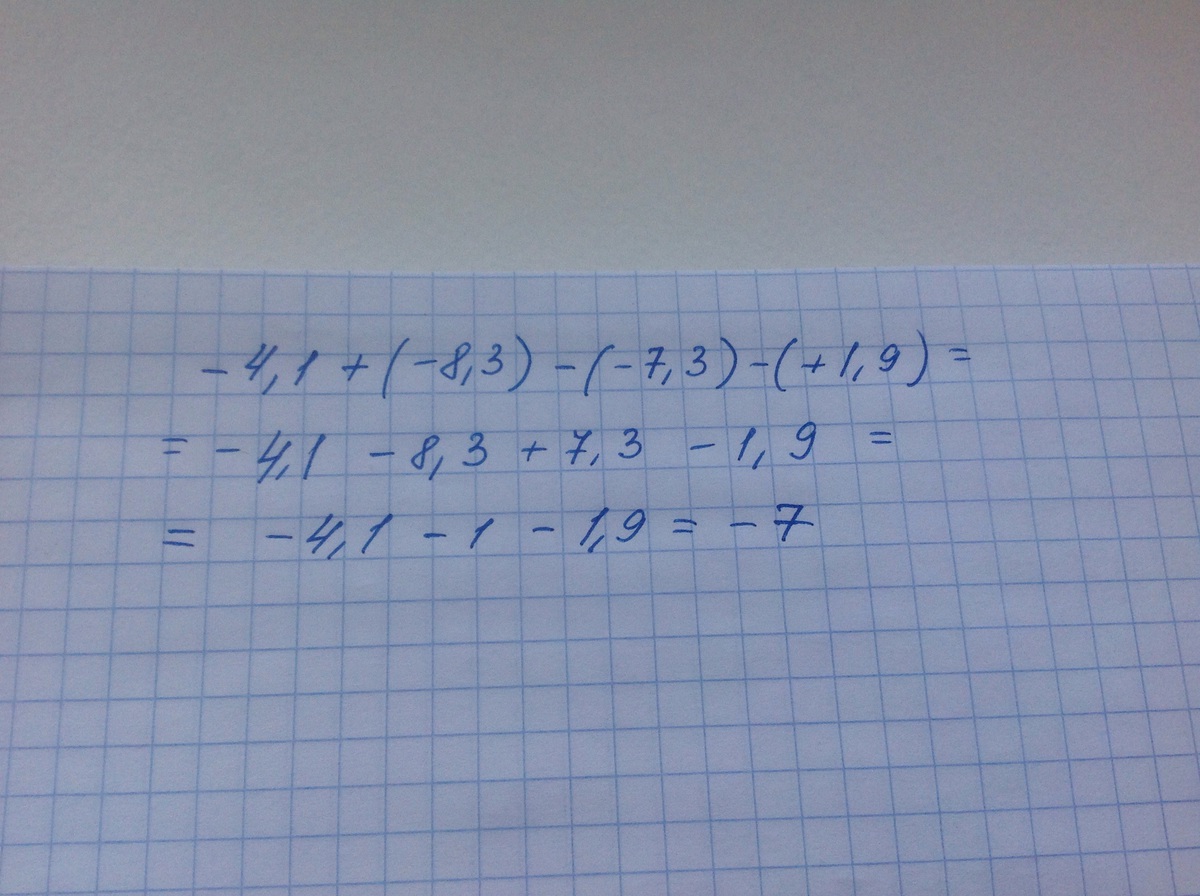 -4,1 + (-8,3) - (-7,3) - (+1,9) =
= -4,1 - 8,3 + 7,3 - 1,9 =
= -4,1 - 1 - 1,9 = -7